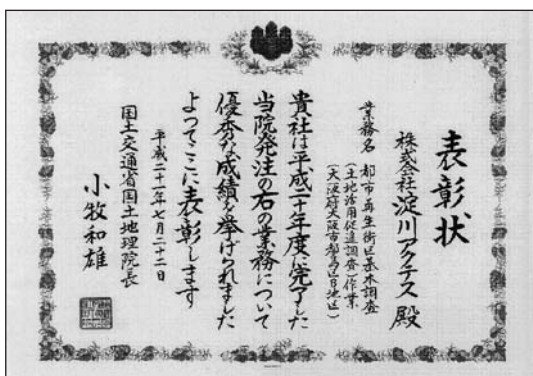 表彰状
株式会社淀川アクテス 殿
業務名 都市再生街区基本調査
(土地活用促進調査)作業
(大阪府大阪市都島区B地区)
貴社は平成二十年度に完了した
当院発注の右の業務について
優秀な成績を挙げられました
よってここに表彰します
平成二十一年七月二十二日
国土交通省国土地理院長
小牧和雄